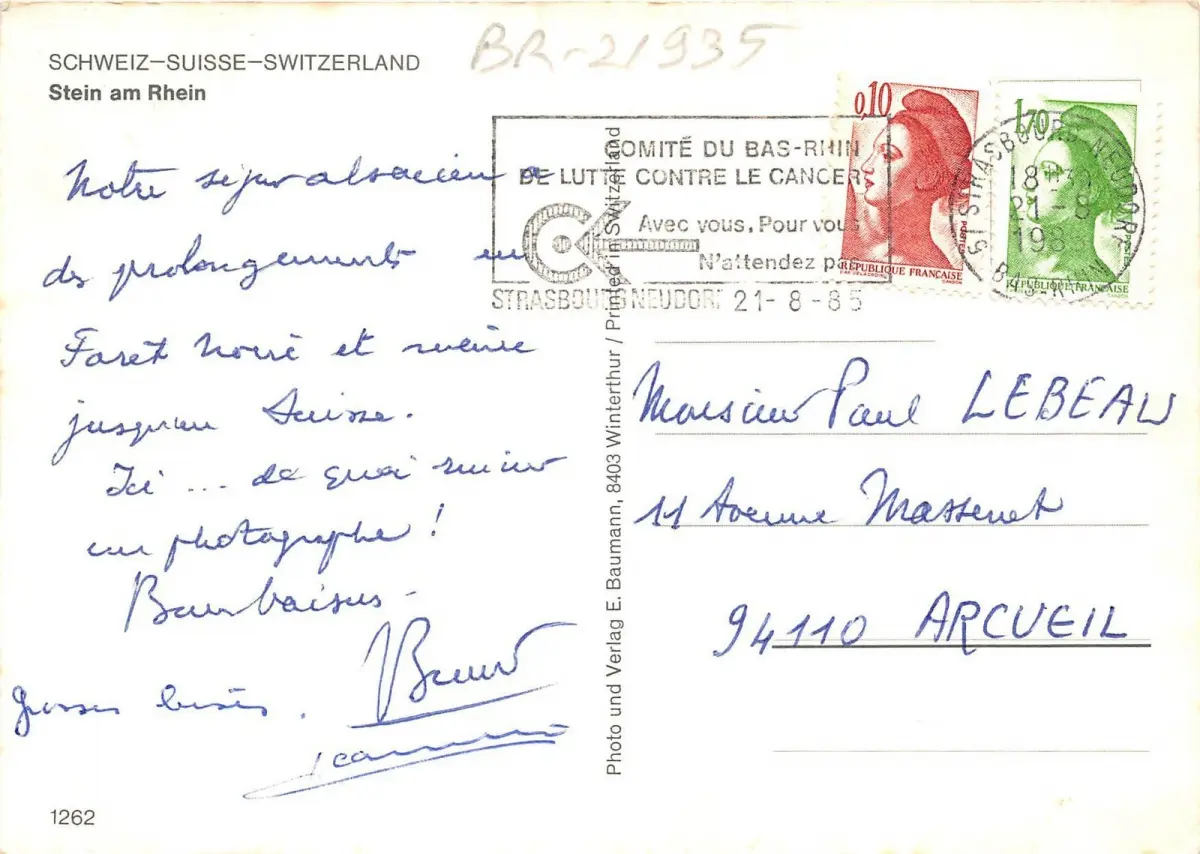 BR-21935
SCHWEIZ–SUISSE–SWITZERLAND
Stein am Rhein
Notre séjour alsacien a
des prolongements en
Foret Noire et même
jusqu'en Suisse.
Ici ... de quoi ruiner
un photographe!
Bons baisers -
grosses bises.
1262
Photo und Verlag E. Baumann, 8403 Winterthur / Printed in Switzerland
COMITÉ DU BAS-RHIN
DE LUTTE CONTRE LE CANCER
Avec vous. Pour vous
N'attendez pas
STRASBOURG NEUDORF 21-8-85
0,10
POSTES
RÉPUBLIQUE FRANÇAISE
1,70
RÉPUBLIQUE FRANÇAISE
STRASBOURG-NEUDORF
18 H 30
21-8
198
BAS-RHIN
Monsieur Paul LEBEAU
11 Avenue Massenet
94110 ARCUEIL